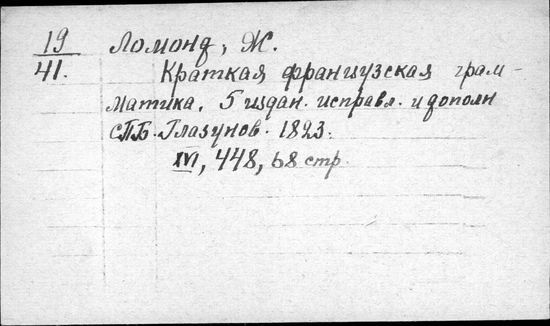 19 Ломонд, Ж.
41. Краткая французская грам-
матика. 5 издан. исправл. и дополн
СПБ. Глазунов. 1823.
XVI, 448, 68 стр.